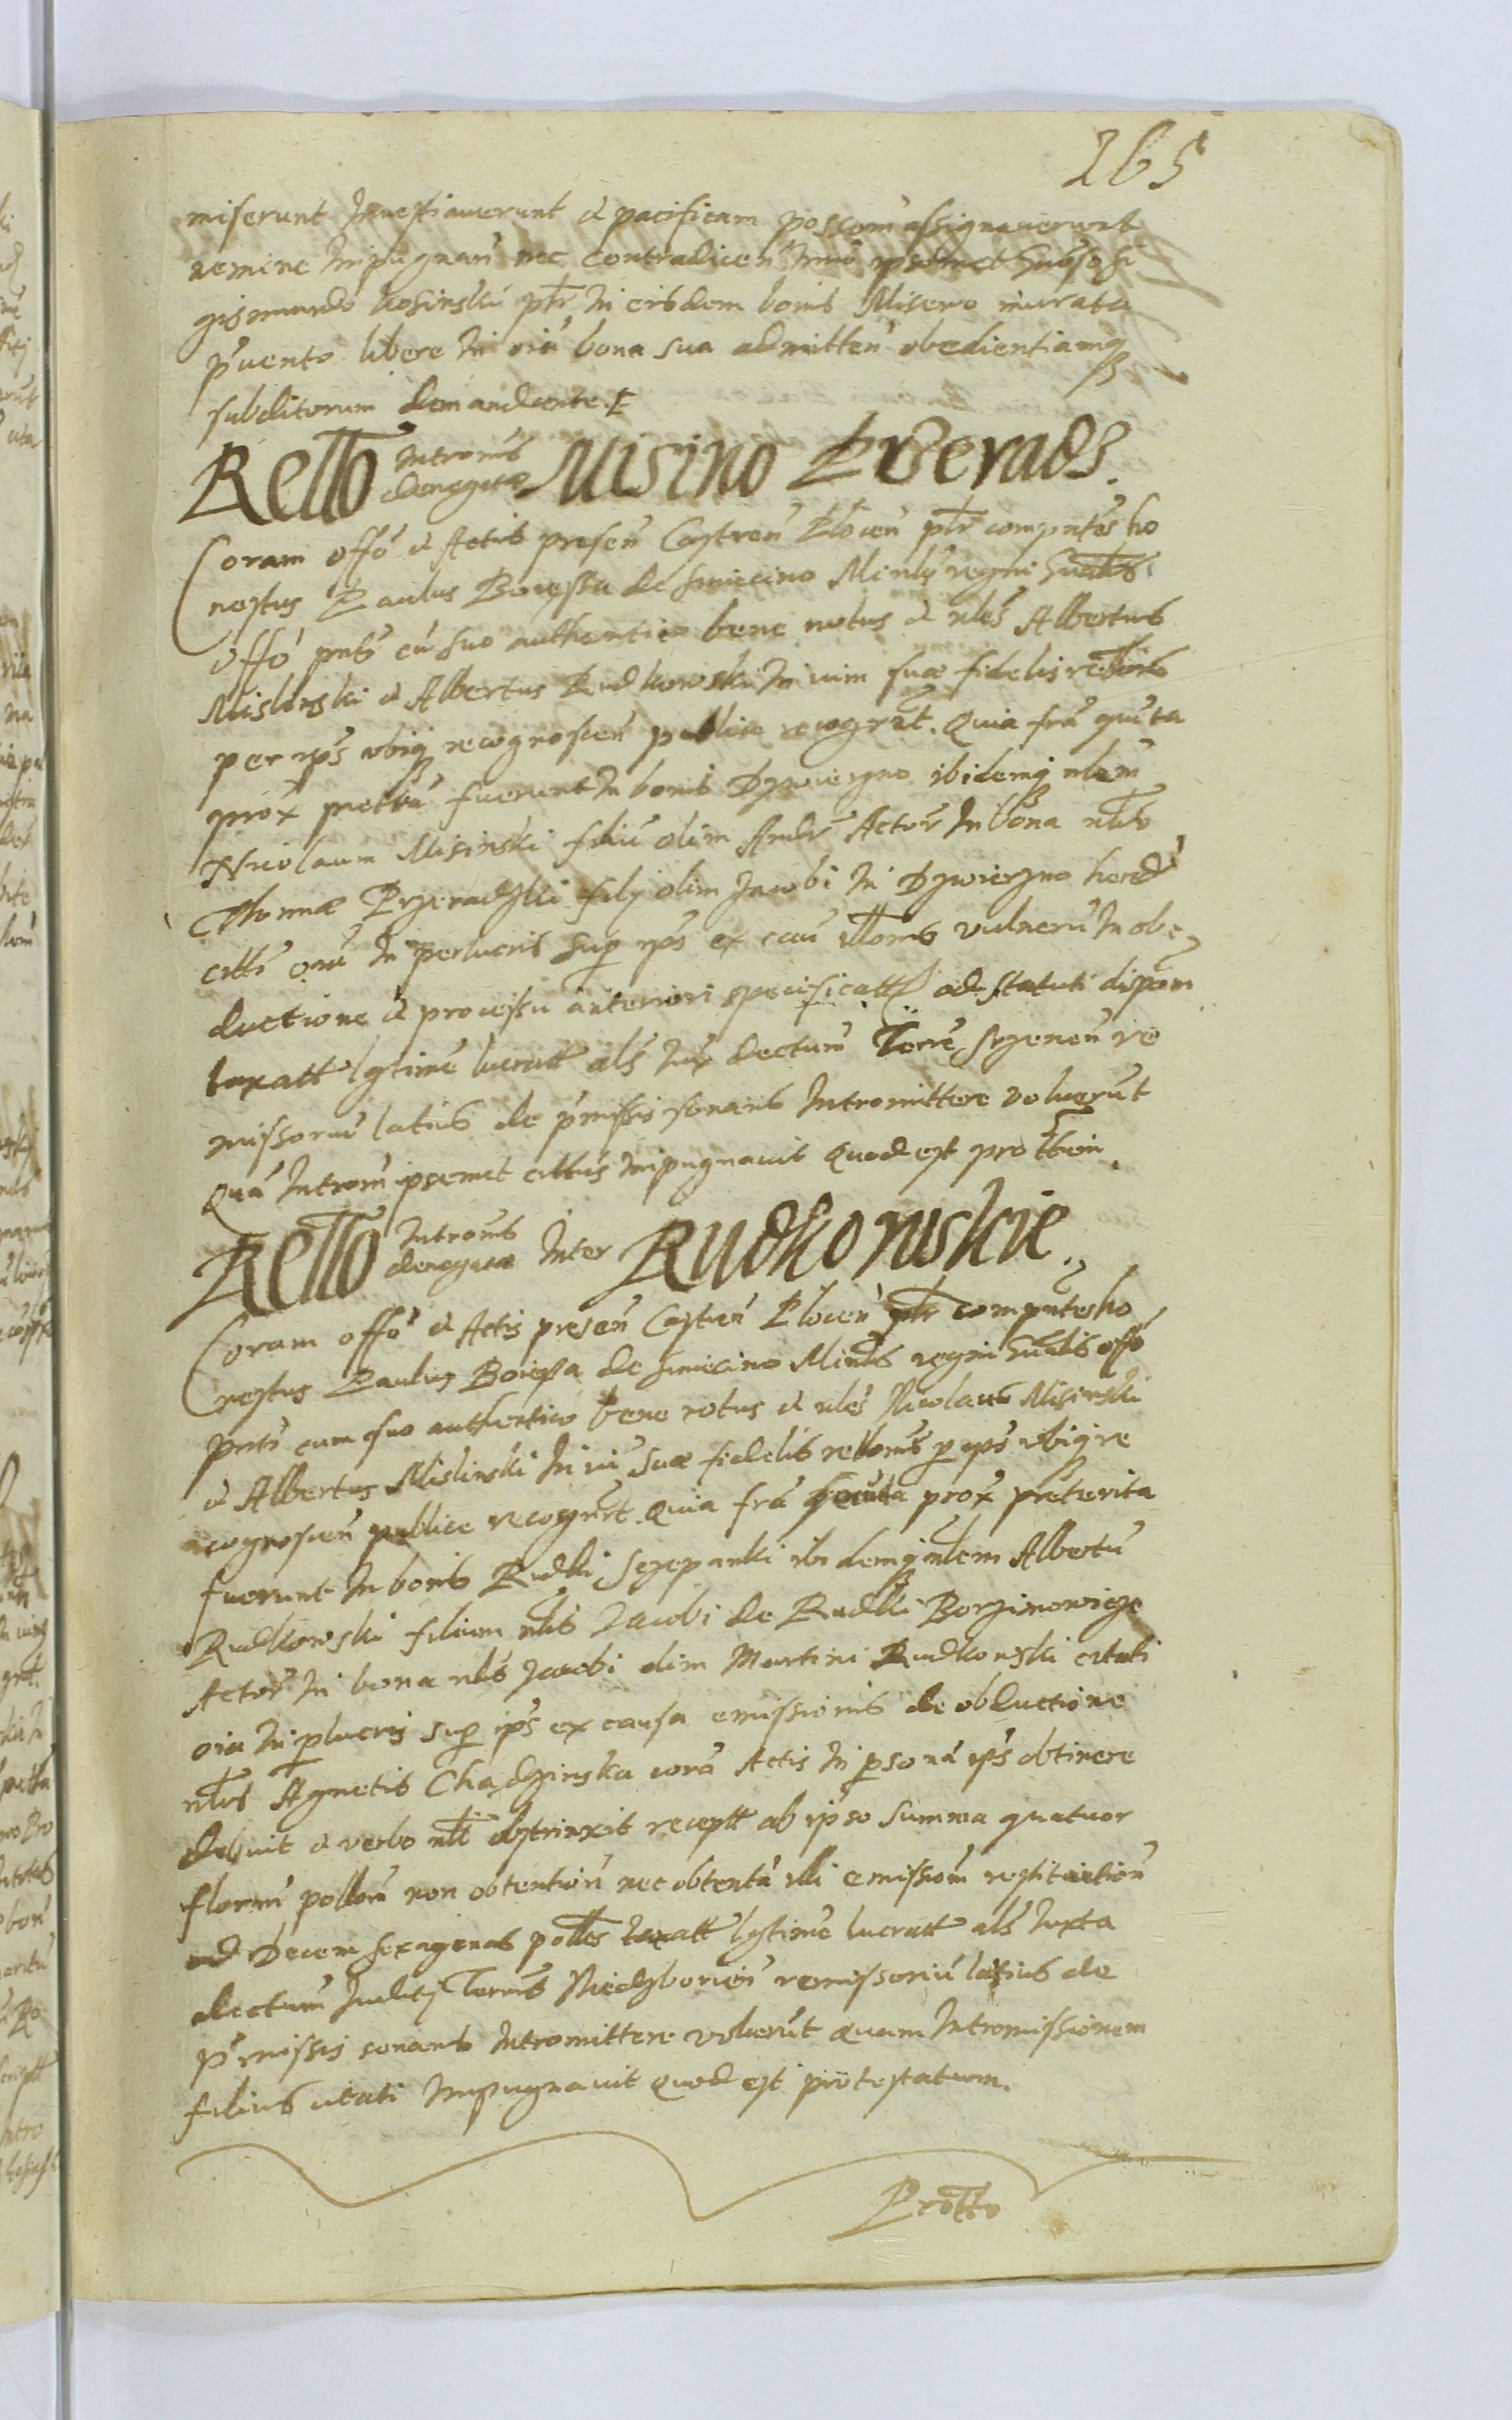 265
miserunt Investiaverunt et pacificam possom assignaverunt
nemine Inpugnan nec contradicen Imo ipsomet Gnoso Si
gismundo kosinski ptr In eisdem bonis Misewo murata
pvento libere In oia bona sua admitten obedientiamq
subditorum demandante.
Rello Intromis denegatæ Misino Przerads.
Coram offo et Actis presen Castren Plocen ptr comparntes ho
nestus Paulus Boiessa de smiecino Minlis regni Gnalis
offo pnti cu suo authentico bene notus et nles Albertus
Mislinski et Albertus Rudkowski In vim suæ fidelis rellonis
per ips ubiq recognoscen publice recogrnt. Quia fra quita
prox pretta fuerunt In bonis Dzwierzno ibidemq nlem
Nicolaum Misinski filiu olim Andr Actor In bona nlis
Thomæ Przeradzki filij olim Jacobi In Dzwierzno hered
citti oia In perlucris sup ips ex cau illonis vulneru In ob
ductione et processu anteriori specificatt ad statuti dispom
taxatt lgtime lucratt als Jux dectum Terre Srzenen re
missoriu latius de pmissis sonans Intromittere voluerut
Qua Introm ipsemet cittus Inpugnavit Quod est prottum.
Rello Intromis denegatæ Inter Rudkowskie.
Coram offo et Actis presen Castren Plocen ptr comparntes ho
nestus Paulus Boiessa de smiecino Minlis regni Gnalis offo
pnti cum suo authentico bene notus et nles Nicolaus Misinski
et Albertus Mislinski In vi suæ fidelis rellonis p ips ubiq re
cognoscen publice recogrnt Quia fra quita prox preterita
fuerunt In bonis Rudki Szczepanki ibidemq nlem Albertu
Rudkowski filium nlis Jacobi de Rudki Borzimowicze
Actor In bona nlis Jacobi olim Martini Rudkowski citati
oia In plucris sup ips ex causa emissionis de obductione
nlis Agnetis Chadzinska cora Actis In psona ips obtinere
debuit et verbo nli obstrinxit receptt ab ipso summa quatuor
floren pollom non obtention nec obtenta illi emissiom restitution
ad Decem sexagenas polles taxatt lgtime lucratt als Juxta
dectum Juditij Terris Niedzboricen remissoriu latius de
pmissis sonans Intromittere voluerut Quam Intromissionem
filius citati Inpugnavit Quod est protestatum.
Protto